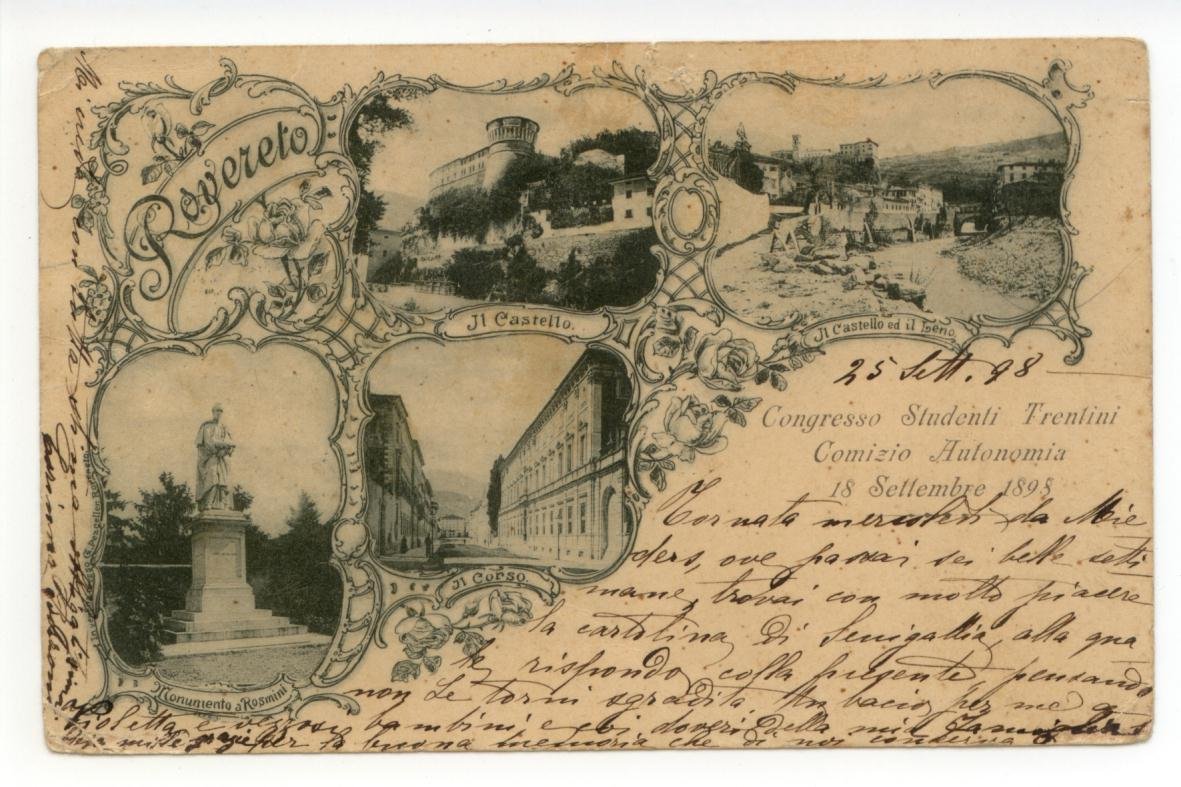 Rovereto
Il Castello.
Il Castello ed il Leno.
Monumento a Rosmini
Il Corso.
25 Sett. 98
Congresso Studenti Trentini
Comizio Autonomia
18 Settembre 1898
Tornata mercoledì da Mie
ders, ove passai sei belle setti
mane, trovai con molto piacere
la cartolina di Senigallia, alla qua
le rispondo colla presente, pensando
non Le torni sgradita. Un bacio per me a
Violetta e vezzosi bambini e coi doveri della mia famiglia
mille grazie per la buona memoria che di noi conserva